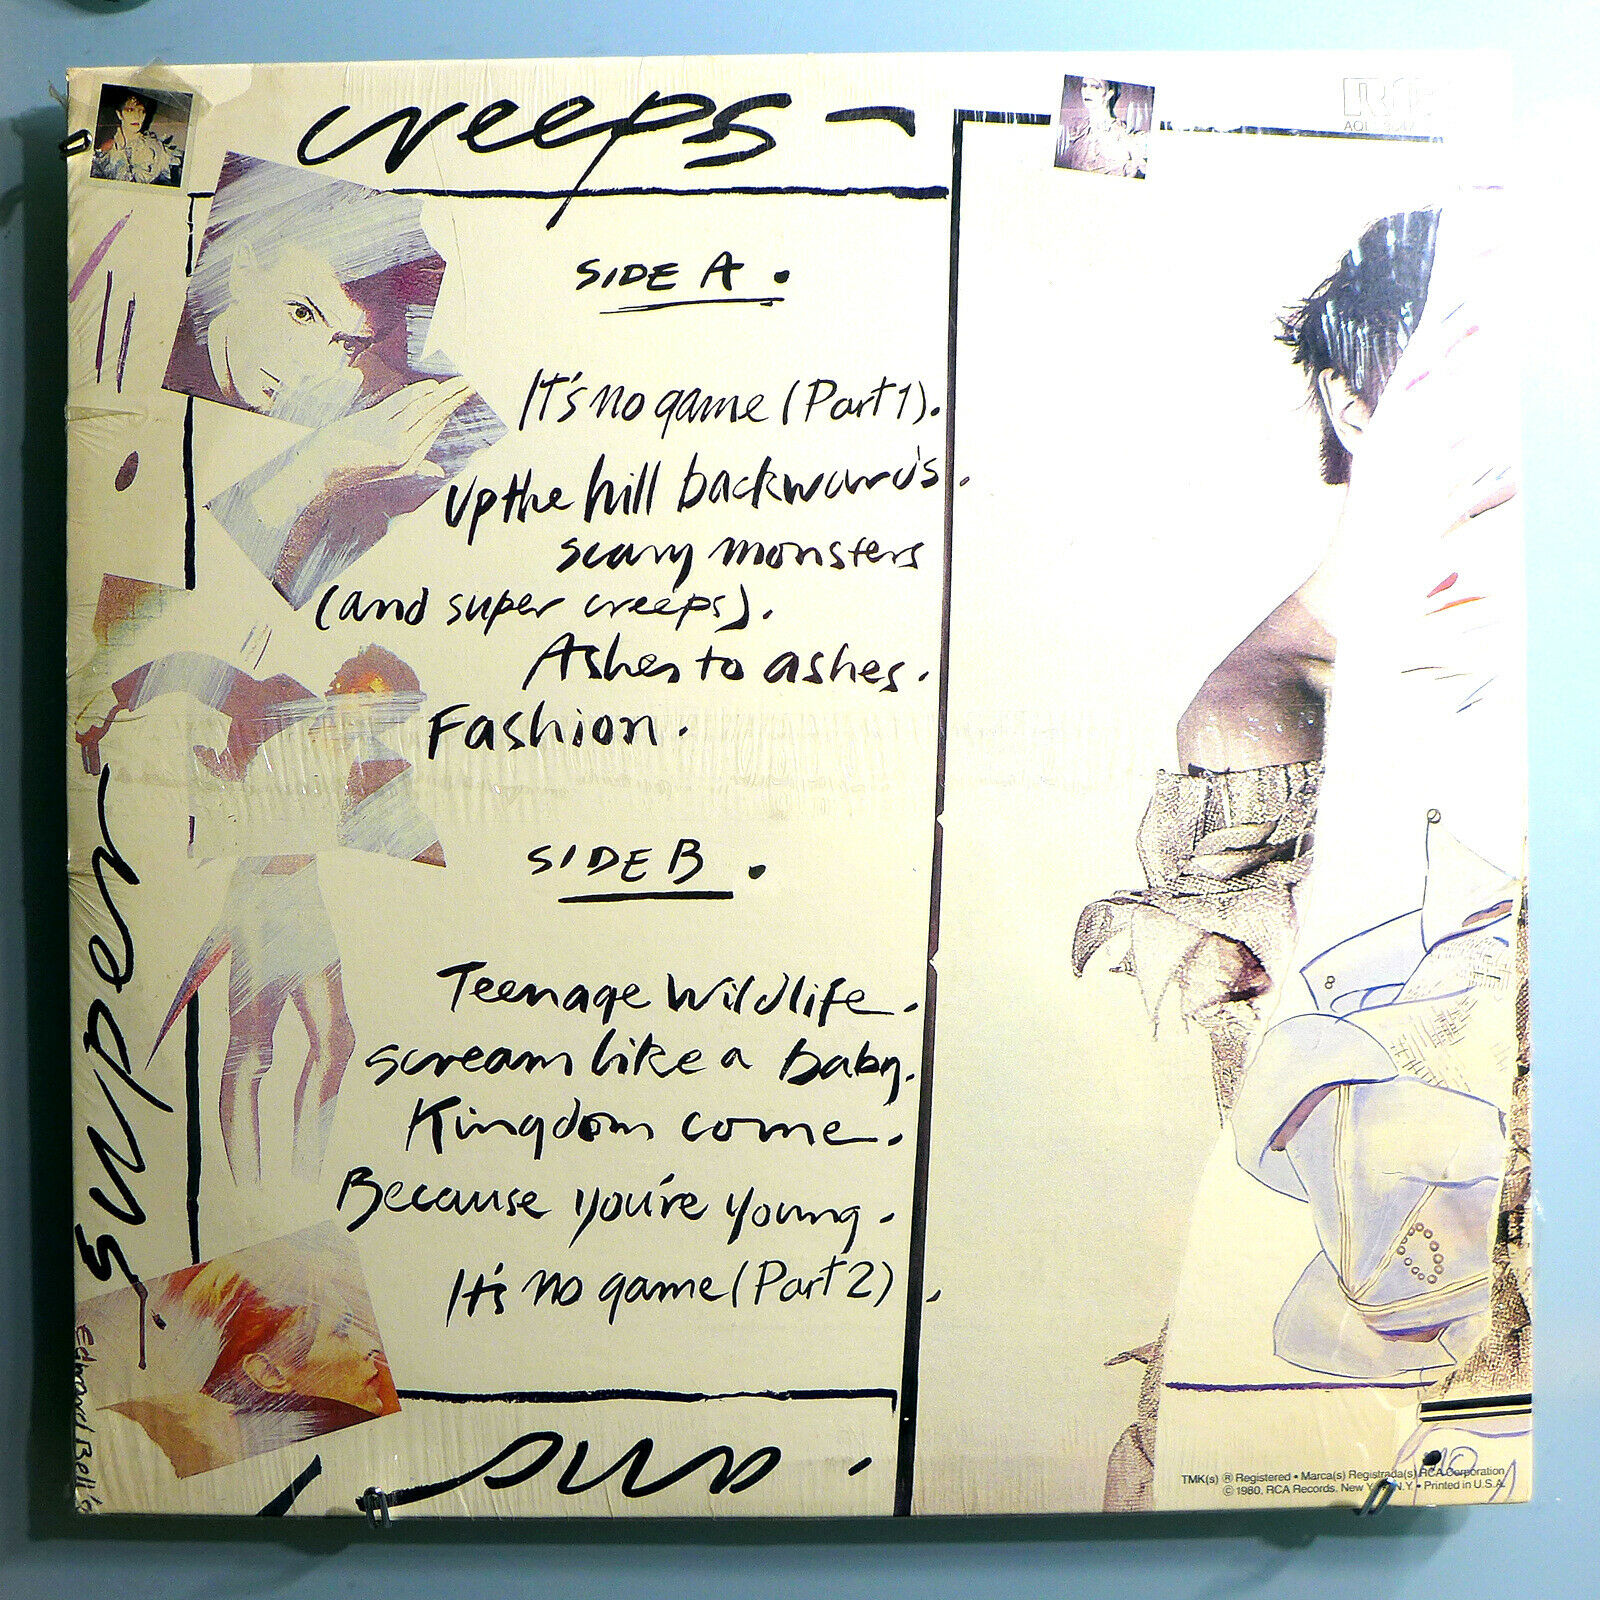 creeps –
SIDE A.
It's no game (Part 1).
Up the hill backwards.
scary monsters
(and super creeps).
Ashes to ashes.
Fashion.
SIDE B.
Teenage Wildlife.
scream like a baby.
Kingdom come.
Because you're young.
It's no game (Part 2).
super
and
Edward Bell
TMK(s) ® Registered • Marca(s) Registrada(s) RCA Corporation
© 1980, RCA Records, New York, N.Y. • Printed in U.S.A.